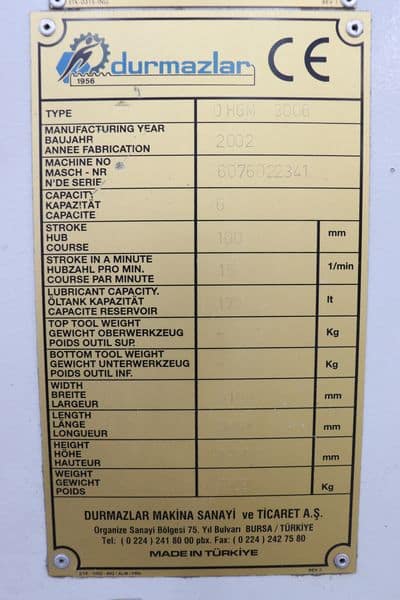 1956
durmazlar
CE
TYPE
MANUFACTURING YEAR 2002
BAUJAHR
ANNEE FABRICATION
MACHINE NO 6076022341
MASCH - NR
N'DE SERIE
CAPACITY 6
KAPAZITÄT
CAPACITE
STROKE 100 mm
HUB
COURSE
STROKE IN A MINUTE 1/min
HUBZAHL PRO MIN.
COURSE PAR MINUTE
LUBRICANT CAPACITY. lt
ÖLTANK KAPAZITÄT
CAPACITE RESERVOIR
TOP TOOL WEIGHT Kg
GEWICHT OBERWERKZEUG
POIDS OUTIL SUP.
BOTTOM TOOL WEIGHT Kg
GEWICHT UNTERWERKZEUG
POIDS OUTIL INF.
WIDTH mm
BREITE
LARGEUR
LENGTH mm
LÄNGE
LONGUEUR
HEIGHT mm
HÖHE
HAUTEUR
WEIGHT Kg
GEWICHT
POIDS
DURMAZLAR MAKİNA SANAYİ ve TİCARET A.Ş.
Organize Sanayi Bölgesi 75. Yıl Bulvarı BURSA / TÜRKİYE
Tel: ( 0 224 ) 241 80 00 pbx. Fax: ( 0 224 ) 242 75 80
MADE IN TÜRKİYE